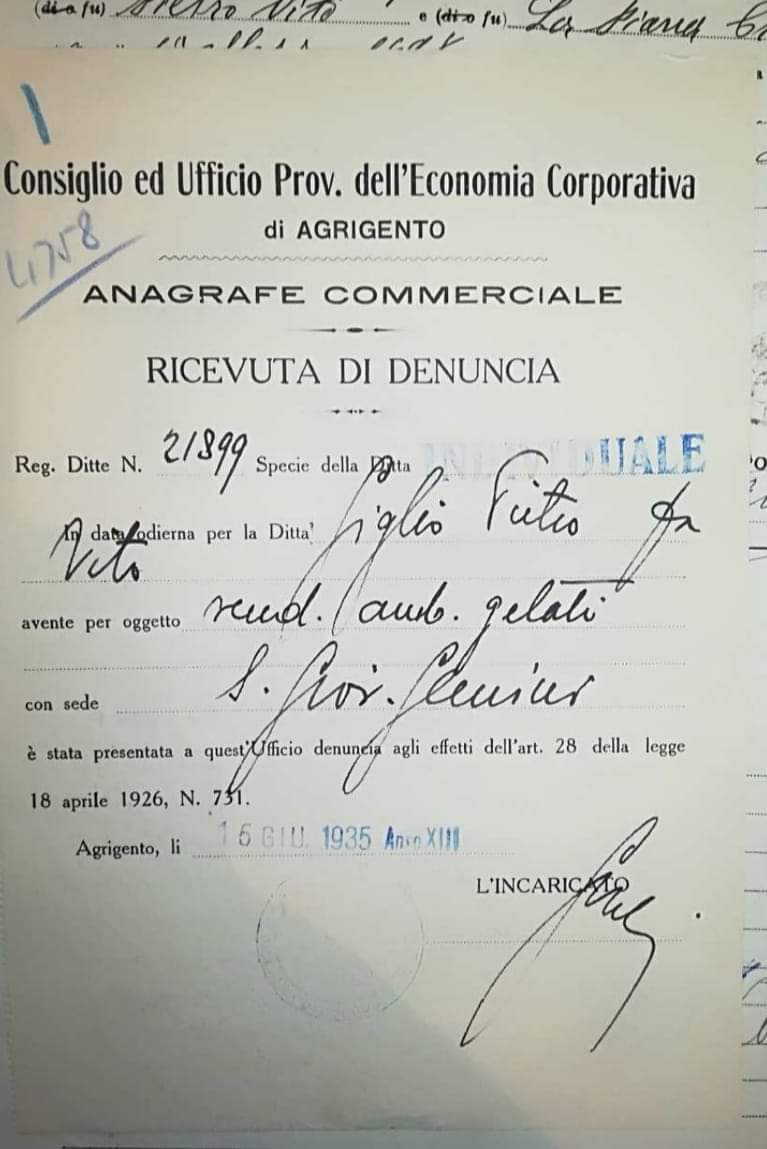 (di o fu) Vito e (di o fu) La Piana
Consiglio ed Ufficio Prov. dell'Economia Corporativa
di AGRIGENTO
4758
ANAGRAFE COMMERCIALE
RICEVUTA DI DENUNCIA
Reg. Ditte N. 21899 Specie della Ditta INDIVIDUALE
In data odierna per la Ditta Figlio Pietro fu
Vito
avente per oggetto vend. amb. gelati
con sede S. Giov. Gemini
è stata presentata a quest'Ufficio denuncia agli effetti dell'art. 28 della legge
18 aprile 1926, N. 731.
Agrigento, li 16 GIU. 1935 Anno XIII
L'INCARICATO